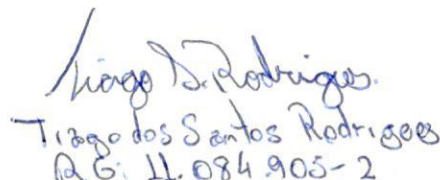 Tiago S. Rodrigues.
Tiago dos Santos Rodrigues
RG: 11.084.905-2